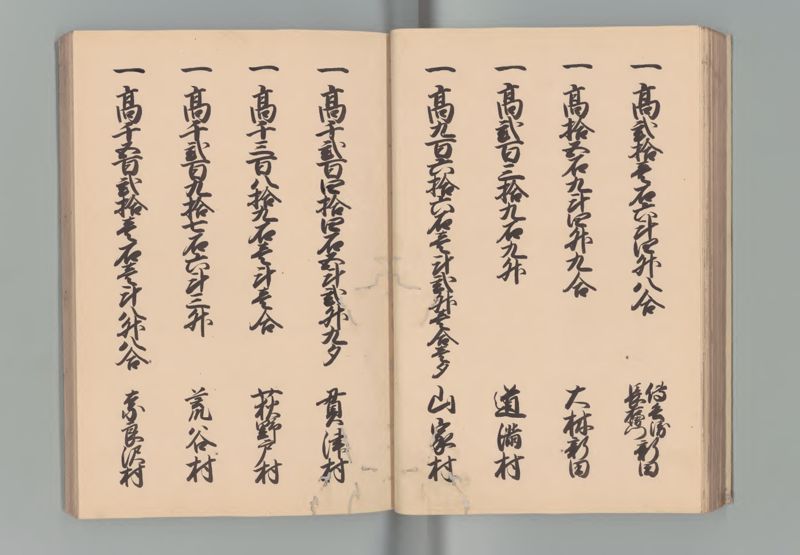 一 高弐拾壱石六斗四升八合 伝兵衛 長右衛門 新田
一 高拾五石九斗四升九合 大林新田
一 高弐百三拾九石九升 道満村
一 高九百六拾六石壱斗弐升壱合壱夕 山家村
一 高千弐百四拾四石五斗弐升九夕 貫津村
一 高千三百八拾九石壱斗壱合 荻野戸村
一 高千弐百九拾七石六斗三升 荒谷村
一 高千五百弐拾壱石壱斗八升八合 奈良沢村